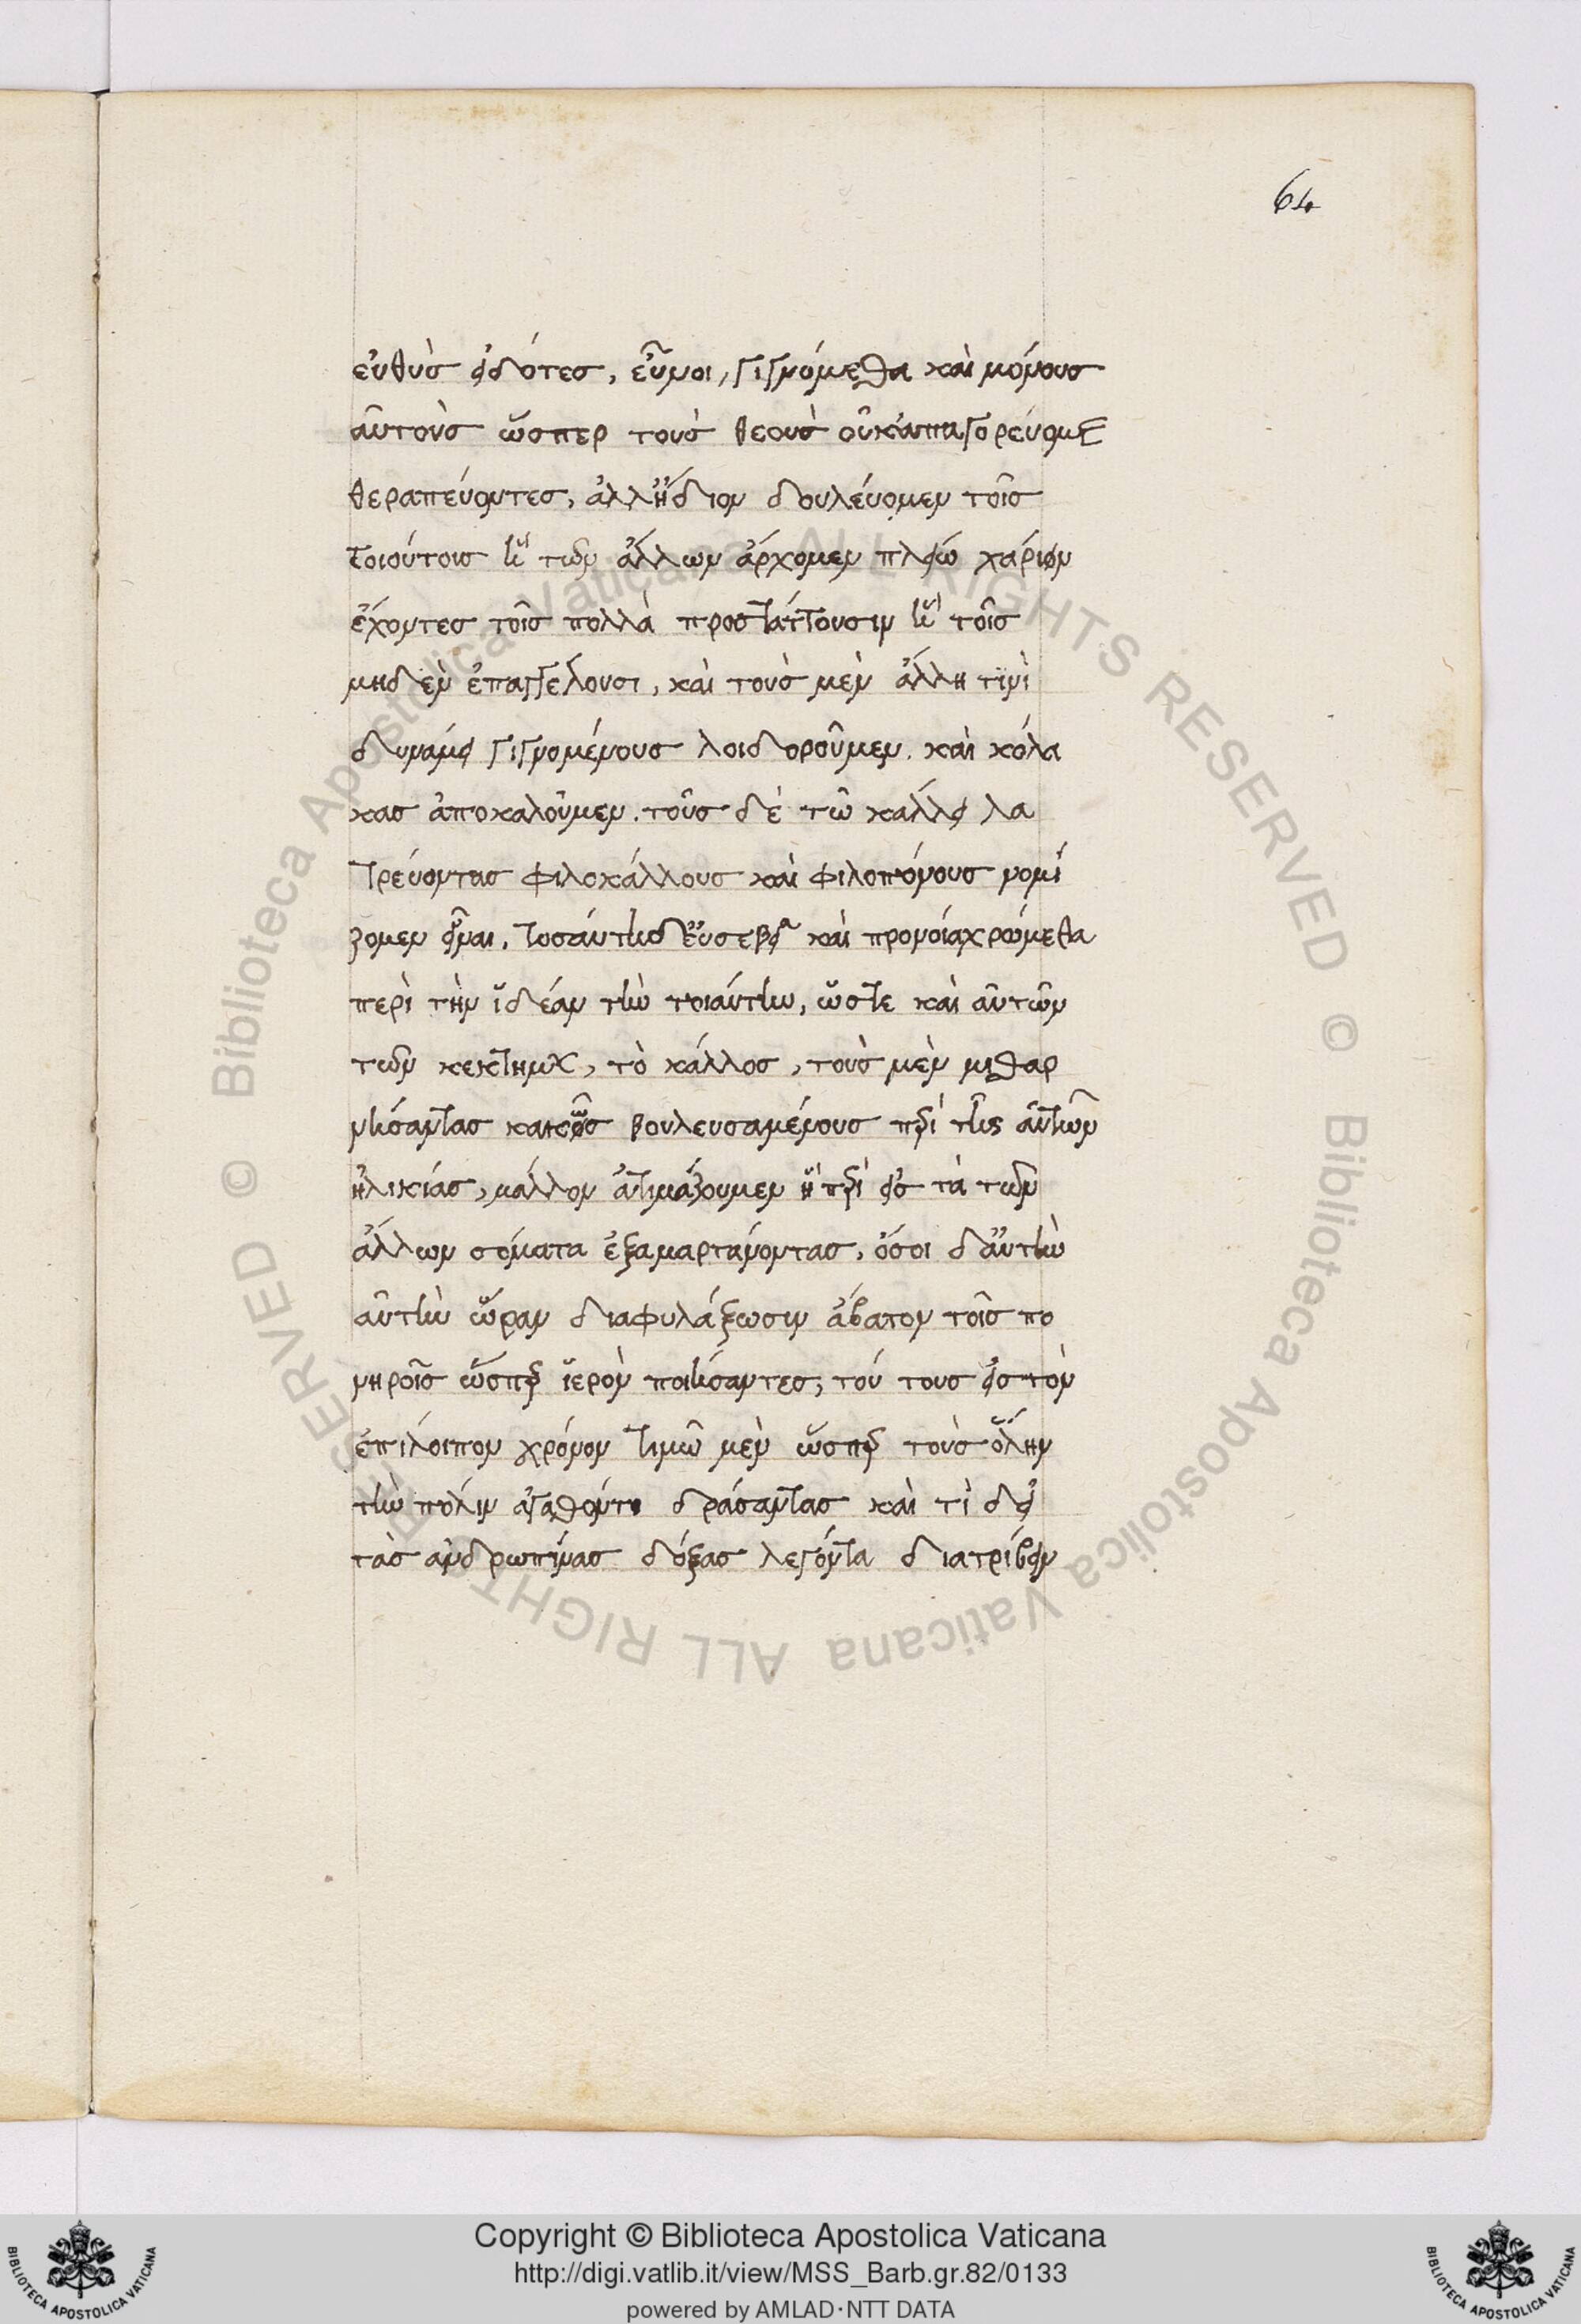 64
εὐθὺσ ἰδόντεσ, εὖνοι, γιγνόμεθα καὶ μόνουσ
αὐτοὺσ ὥσπερ τοὺσ θεοὺσ οὐκἀπαγορεύομε
θεραπεύοντεσ, ἀλλ' ἥδιον δουλεύομεν τοῖσ
τοιούτοισ ἢ τῶν ἄλλων ἄρχομεν πλείω χάριν
ἔχοντεσ τοῖσ πολλὰ προστάττουσιν ἢ τοῖσ
μηδὲν ἐπαγγέλουσι, καὶ τοὺσ μὲν ἄλλη τινὶ
δυνάμει γιγνομένουσ λοιδοροῦμεν. καὶ κόλα
κασ ἀποκαλοῦμεν. τοὺσ δὲ τῶ κάλλει λα
τρεύοντασ φιλοκάλλουσ καὶ φιλοπόνουσ νομί
ζομεν εἶναι, τοσαύτησ δ' εὐσεβείασ καὶ προνοίαχρώμεθα
περὶ τὴν ἰδέαν τὴν τοιαύτην, ὥστε καὶ αὐτῶν
τῶν κεκτημχ, τὸ κάλλοσ, τοὺσ μὲν μιθαρ
νήσαντασ κακῶσ βουλευσαμένουσ περὶ τῆς αὐτῶν
ἡλικίασ, μάλλον ἀτιμάζουμεν ἢ περὶ εἰσ τὰ τῶν
ἄλλων σόματα ἐξαμαρτάνοντασ, ὅσοι δ' αὐτὴν
αὐτὴν ὥραν διαφυλάξωσιν ἄβατον τοῖσ πο
νηροῖσ ὥσπερ ἱερὸν ποιήσαντεσ, τού τουσ εἰσ τὸν
ἐπιλόιπον χρόνον τιμῶ μὲν ὥσπερ τοὺσ ὅλην
τὴν πόλιν ἀγαθόντι δράσαντασ καὶ τὶ δεῖ
τὰσ ἀνδρωπίνασ δόξασ λεγόντα διατρίβειν
© Biblioteca Apostolica Vaticana ALL RIGHTS RESERVED © Biblioteca Apostolica Vaticana ALL RIGHTS RESERVED
Copyright © Biblioteca Apostolica Vaticana
http://digi.vatlib.it/view/MSS_Barb.gr.82/0133
powered by AMLAD·NTT DATA
BIBLIOTECA APOSTOLICA VATICANA
BIBLIOTECA APOSTOLICA VATICANA